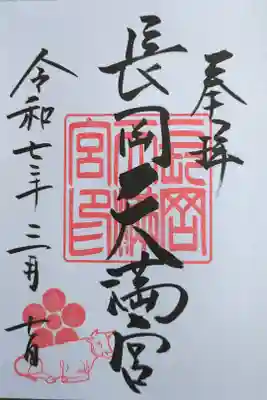 奉拝
長岡天満宮
長岡天満宮印
令和七年三月十一日